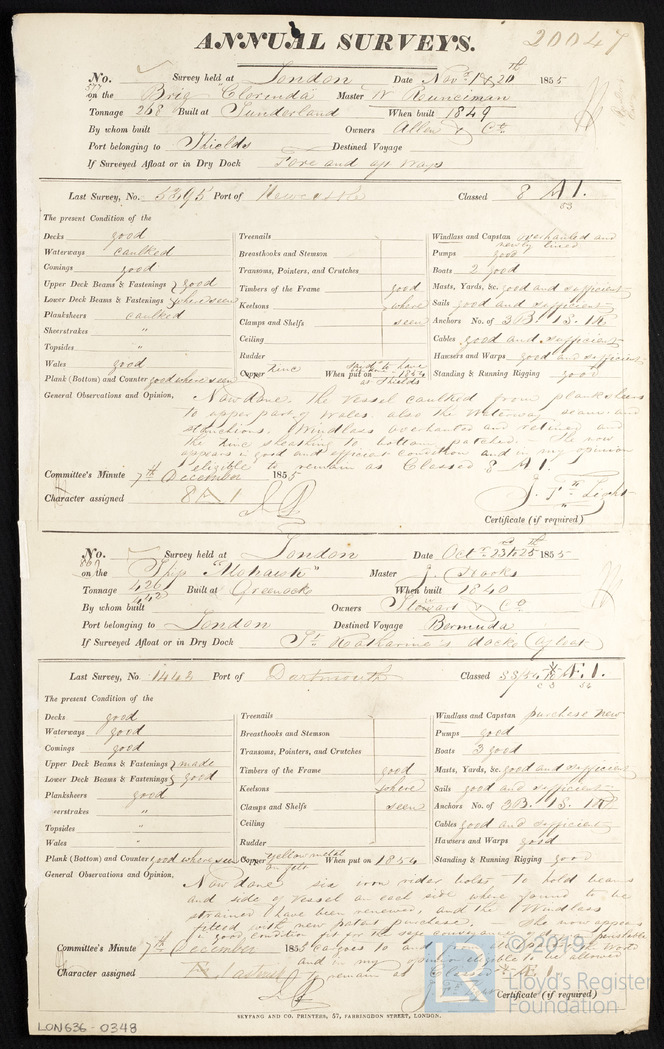 ANNUAL SURVEYS.
20047
No. 577 Survey held at London Date Novr 1 & 20th 1855
on the Brig "Clorinda" Master W Runciman
Tonnage 268 Built at Sunderland When built 1849
By whom built Owners Allen & Co
Port belonging to Shields Destined Voyage
If Surveyed Afloat or in Dry Dock
Last Survey, No. Port of Newcastle Classed 8 A 1.
53
The present Condition of the
Decks good
Waterways caulked
Comings good
Upper Deck Beams & Fastenings good
Lower Deck Beams & Fastenings where seen
Planksheers caulked
Sheerstrakes "
Topsides "
Wales good
Plank (Bottom) and Counter good where seen
Treenails
Breasthooks and Stemson
Transoms, Pointers, and Crutches
Timbers of the Frame good
Keelsons where
Clamps and Shelfs seen
Ceiling
Rudder
Copper Zinc When put on 1854
at Shields
Windlass and Capstan overhauled and
newly lined
Pumps good
Boats 2 good
Masts, Yards, &c. good and sufficient
Sails good and sufficient
Anchors No. of 3B. 1S. 1K
Cables good and sufficient
Hawsers and Warps good and sufficient
Standing & Running Rigging good
General Observations and Opinion, Now done. The Vessel caulked from planksheers
to upper part of Wales. also the Waterway seams and
stanchions. Windlass overhauled and relined and
the zinc sheathing to bottom patched. She now
appears in good and efficient condition and in my opinion
eligible to remain as Classed 8 A 1.
Committee's Minute 7th December 1855
Character assigned 8 A 1
J. Light
Certificate (if required)
No. 860 Survey held at London Date Octr 23 & 25th 1855
on the Ship "Mohawk" Master J. Stocks
Tonnage 426/442 Built at Greenock When built 1840
By whom built Owners Stewart & Co
Port belonging to London Destined Voyage Bermuda
If Surveyed Afloat or in Dry Dock St Katharine's docks (afloat)
Last Survey, No 1442 Port of Dartmouth Classed Æ 1.
The present Condition of the
Decks good
Waterways good
Comings good
Upper Deck Beams & Fastenings made
Lower Deck Beams & Fastenings good
Planksheers good
eerstrakes "
Topsides "
Wales "
Plank (Bottom) and Counter good where seen
Treenails
Breasthooks and Stemson
Transoms, Pointers, and Crutches
Timbers of the Frame good
Keelsons where
Clamps and Shelfs seen
Ceiling
Rudder
Copper yellow metal
on felt When put on 1854
Windlass and Capstan purchase new
Pumps good
Boats 3 good
Masts, Yards, &c. good and sufficient
Sails good and sufficient
Anchors No. of 3B. 1S. 1K
Cables good and sufficient
Hawsers and Warps good
Standing & Running Rigging good
General Observations and Opinion, Now done six iron rider bolts to hold beams
and side of vessel on each side where found to be
strained have been renewed, and the Windlass
fitted with new patent purchase. She now appears
in good condition fit for the safe conveyance of dry perishable
cargoes to and from all parts of the World
and in my opinion eligible to be allowed
to remain as Classed Æ 1
Committee's Minute 7th December 1855
Character assigned
Certificate (if required)
SEYFANG AND CO. PRINTERS, 57, FARRINGDON STREET, LONDON.
LON636-0348
© 2019
Lloyd's Register
Foundation